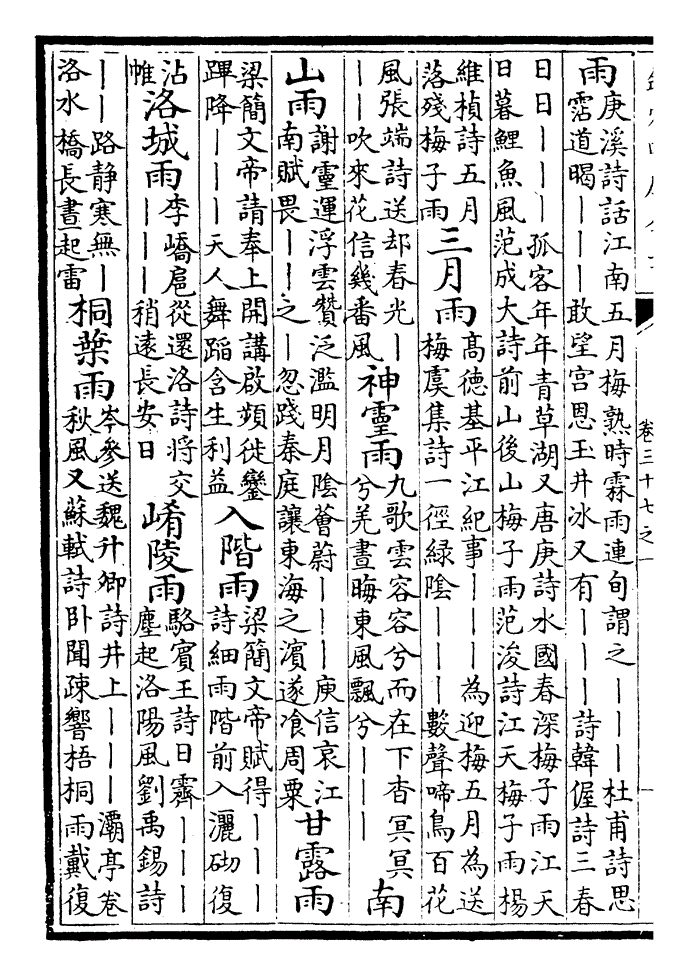 卷三十七之一
雨
庚溪詩話江南五月梅熟時霖雨連旬謂之丨丨丨杜甫詩思
霑道暍丨丨丨敢望宮恩玉井冰又有丨丨丨詩韓偓詩三春
日日丨丨丨孤客年年青草湖又唐庚詩水國春深梅子雨江天
日暮鯉魚風范成大詩前山後山梅子雨范浚詩江天梅子雨楊
維楨詩五月
落殘梅子雨
三月雨
高德基平江紀事丨丨丨為迎梅五月為送
梅虞集詩一徑緑陰丨丨丨數聲啼鳥百花
風張端詩送却春光丨
丨丨吹來花信幾番風
神靈雨
九歌雲容容兮而在下杳冥冥
兮羌晝晦東風飄兮丨丨丨
南
山雨
謝靈運浮雲贊泛濫明月陰薈蔚丨丨丨庾信哀江
南賦畏丨丨之丨忽踐秦庭讓東海之濱遂飡周粟
甘露雨
梁簡文帝請奉上開講啟頻徙鑾
蹕降丨丨丨天人舞蹈含生利益
入階雨
梁簡文帝賦得丨丨丨
詩細雨階前入灑砌復
沾
帷
洛城雨
李嶠扈從還洛詩將交
丨丨丨稍遠長安日
崤陵雨
駱賓王詩日霽丨丨丨
塵起洛陽風劉禹錫詩
丨丨路静寒無丨
洛水橋長晝起雷
桐葉雨
岑參送魏升卿詩井上丨丨丨灞亭卷
秋風又蘇軾詩卧聞疎響梧桐雨戴復